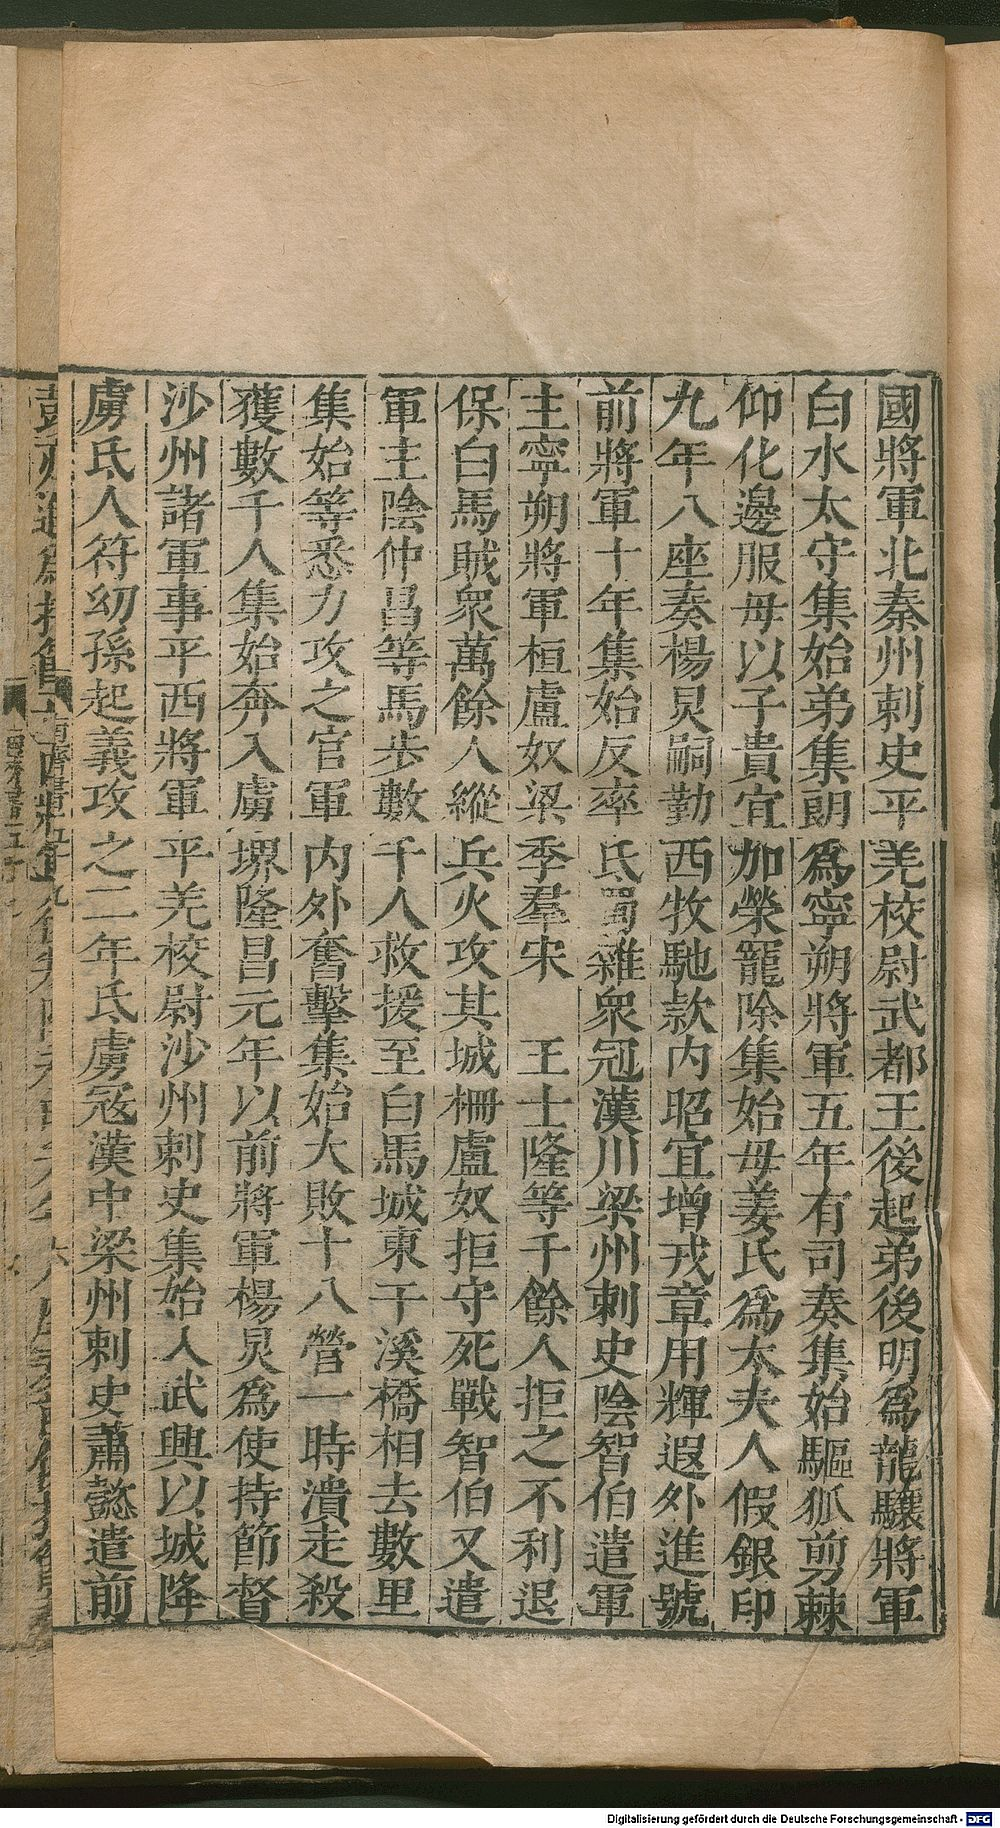 國將軍北秦州刺史平羌校尉武都王後起弟後明爲龍驤將軍
白水太守集始弟集朗爲寧朔將軍五年有司奏集始驅狐剪棘
仰化邊服母以子貴宜加榮寵除集始母姜氏爲太夫人假銀印
九年八座奏楊炅嗣勤西牧馳款内昭宜增戎章用輝遐外進號
前將軍十年集始反率氐蜀雜衆冦漢川梁州刺史陰智伯遣軍
主寧朔將軍桓盧奴梁季羣宋 王士隆等千餘人拒之不利退
保白馬賊衆萬餘人縱兵火攻其城柵盧奴拒守死戰智伯又遣
軍主陰仲昌等馬步數千人救援至白馬城東千溪橋相去數里
集始等悉力攻之官軍内外奮擊集始大敗十八營一時潰走殺
獲數千人集始奔入虜堺隆昌元年以前將軍楊炅爲使持節督
沙州諸軍事平西將軍平羌校尉沙州刺史集始入武興以城降
虜氐人符幼孫起義攻之二年氐虜冦漢中梁州刺史蕭懿遣前
Digitalisierung gefördert durch die Deutsche Forschungsgemeinschaft - DFG